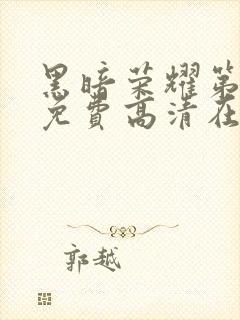 黑暗荣耀第
免费高清在
郭越